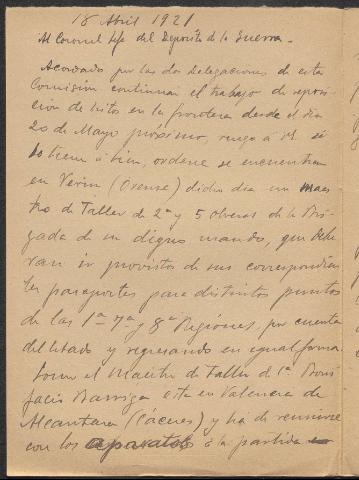 18 Abril 1921
Al Coronel Jefe del Deposito de la Guerra.
Acordado por las dos Delegaciones de esta
Comisión continuar el trabajo de reposi-
cion de hitos en la frontera desde el dia
20 de Mayo próximo, ruego a V. si
lo tiene á bien, ordene se encuentren
en Verin (Orense) dicho dia un Maes
tro de Taller de 2ª y 5 obreros de la Bri
gada de su digno mando, que debe
ran ir provistos de sus correspondien
tes pasaportes para distintos puntos
de las 1ª 7ª y 8ª Regiones, por cuenta
del Estado y regresando en igual forma.
Como el Maestro de Taller de 1ª Boni
facio Barriga está en Valencia de
Alcantara (Cáceres) y há de reunirse
con los aparatos á la partida